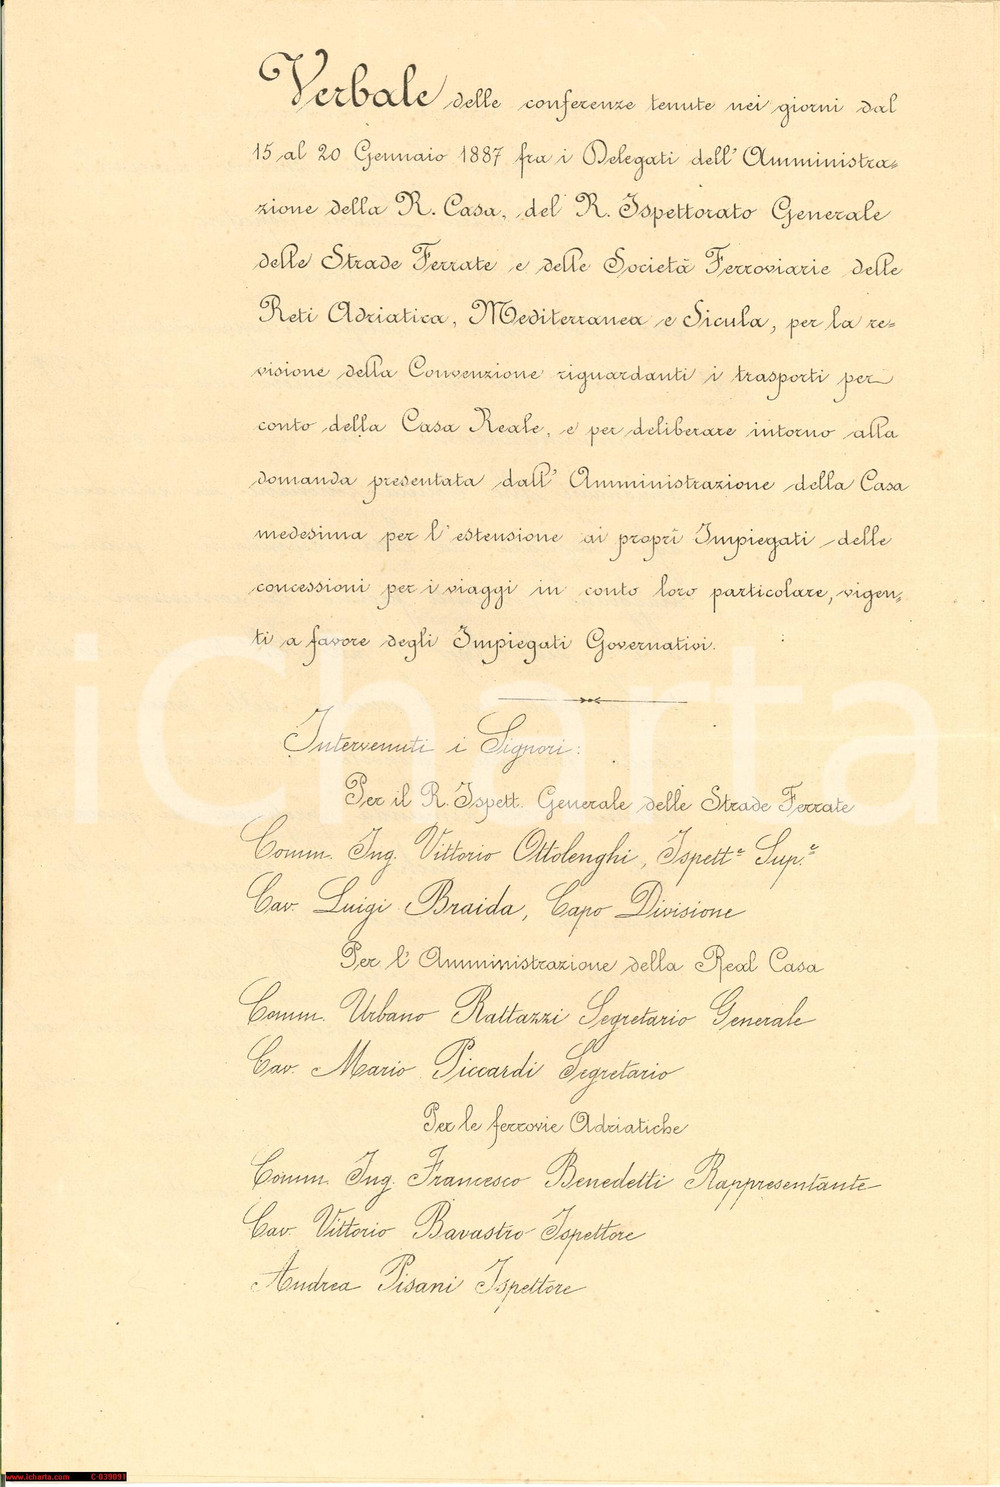 Verbale delle conferenze tenute nei giorni dal
15 al 20 Gennaio 1887 fra i Delegati dell'Amministra=
zione della R. Casa, del R. Ispettorato Generale
delle Strade Ferrate e delle Società Ferroviarie delle
Reti Adriatica, Mediterranea e Sicula, per la re=
visione della Convenzione riguardanti i trasporti per
conto della Casa Reale, e per deliberare intorno alla
domanda presentata dall'Amministrazione della Casa
medesima per l'estensione ai proprî Impiegati delle
concessioni per i viaggi in conto loro particolare, vigen=
ti a favore degli Impiegati Governativi.
Intervenuti i Signori:
Per il R. Ispett. Generale delle Strade Ferrate
Comm. Ing. Vittorio Ottolenghi, Ispett.e Sup.e
Cav. Luigi Braida, Capo Divisione
Per l'Amministrazione della Real Casa
Comm. Urbano Rattazzi Segretario Generale
Cav. Mario Piccardi Segretario
Per le ferrovie Adriatiche
Comm. Ing. Francesco Benedetti Rappresentante
Cav. Vittorio Bavastro Ispettore
Andrea Pisani Ispettore
iCharta
www.icharta.com C-039091